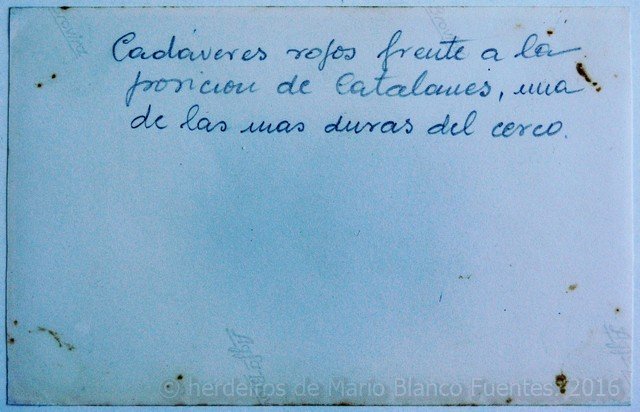 Cadáveres rojos frente a la
posicion de Catalanes, una
de las mas duras del cerco.
© herdeiros de Mario Blanco Fuentes. 2016